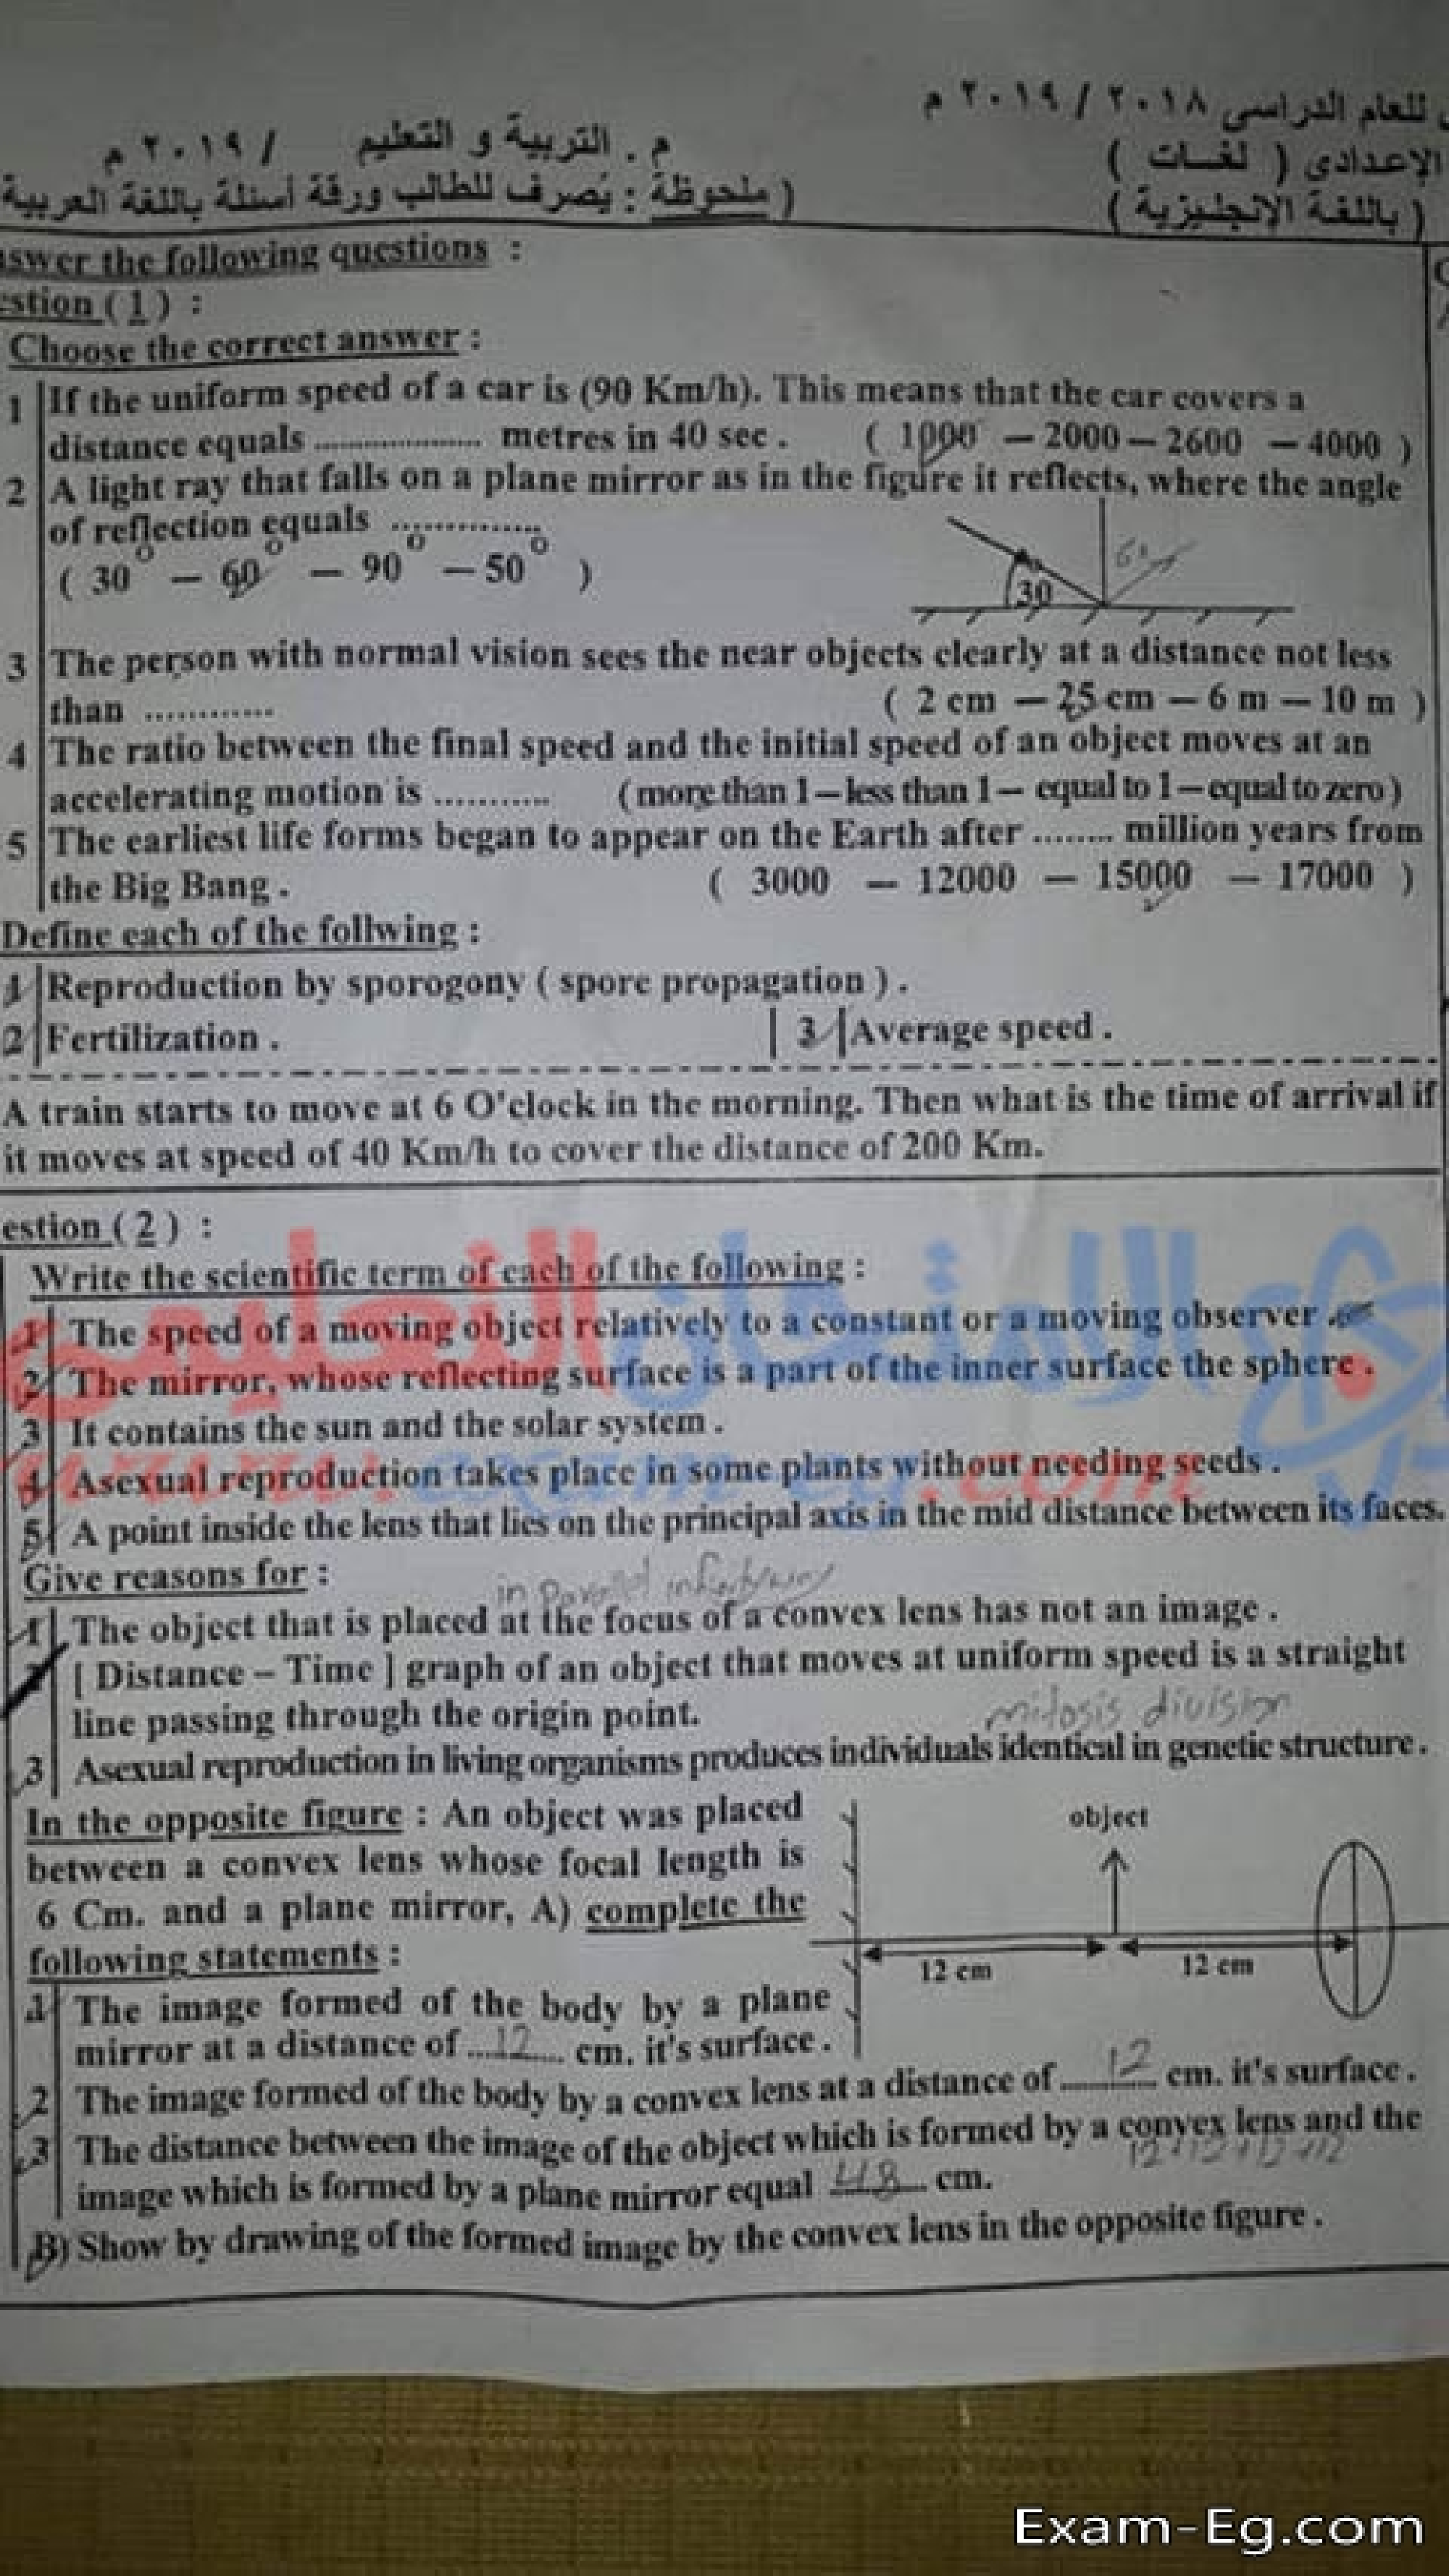 للعام الدراسى ٢٠١٨ / ٢٠١٩ م
م . التربية و التعليم / ٢٠١٩ م
الإعدادى ( لغات )
( ملحوظة : يُصرف للطالب ورقة أسئلة باللغة العربية
( باللغة الإنجليزية )
swer the following questions :
estion ( 1 ) :
Choose the correct answer :
1 If the uniform speed of a car is (90 Km/h). This means that the car covers a
distance equals .................... metres in 40 sec . ( 1000 – 2000 – 2600 – 4000 )
2 A light ray that falls on a plane mirror as in the figure it reflects, where the angle
of reflection equals ...............
( 30° – 60° – 90° – 50° )
60
30
3 The person with normal vision sees the near objects clearly at a distance not less
than ............ ( 2 cm – 25 cm – 6 m – 10 m )
4 The ratio between the final speed and the initial speed of an object moves at an
accelerating motion is ........... (more than 1 – less than 1 – equal to 1 – equal to zero)
5 The earliest life forms began to appear on the Earth after ........ million years from
the Big Bang . ( 3000 – 12000 – 15000 – 17000 )
Define each of the follwing :
1 Reproduction by sporogony ( spore propagation ) .
2 Fertilization . 3 Average speed .
A train starts to move at 6 O'clock in the morning. Then what is the time of arrival if
it moves at speed of 40 Km/h to cover the distance of 200 Km.
estion ( 2 ) :
Write the scientific term of each of the following :
1 The speed of a moving object relatively to a constant or a moving observer .
2 The mirror, whose reflecting surface is a part of the inner surface the sphere .
الامتحان التعليمى
3 It contains the sun and the solar system .
4 Asexual reproduction takes place in some plants without needing seeds .
www.exam-eg.com
5 A point inside the lens that lies on the principal axis in the mid distance between its faces.
Give reasons for :
in
1 The object that is placed at the focus of a convex lens has not an image .
2 [ Distance – Time ] graph of an object that moves at uniform speed is a straight
line passing through the origin point.
mitosis division
3 Asexual reproduction in living organisms produces individuals identical in genetic structure .
In the opposite figure : An object was placed
between a convex lens whose focal length is
6 Cm. and a plane mirror, A) complete the
following statements :
object
12 cm 12 cm
1 The image formed of the body by a plane
mirror at a distance of ....12.... cm. it's surface .
2 The image formed of the body by a convex lens at a distance of ....12.... cm. it's surface .
3 The distance between the image of the object which is formed by a convex lens and the
12+12+12+12
image which is formed by a plane mirror equal 48 cm.
B) Show by drawing of the formed image by the convex lens in the opposite figure .
Exam-Eg.com